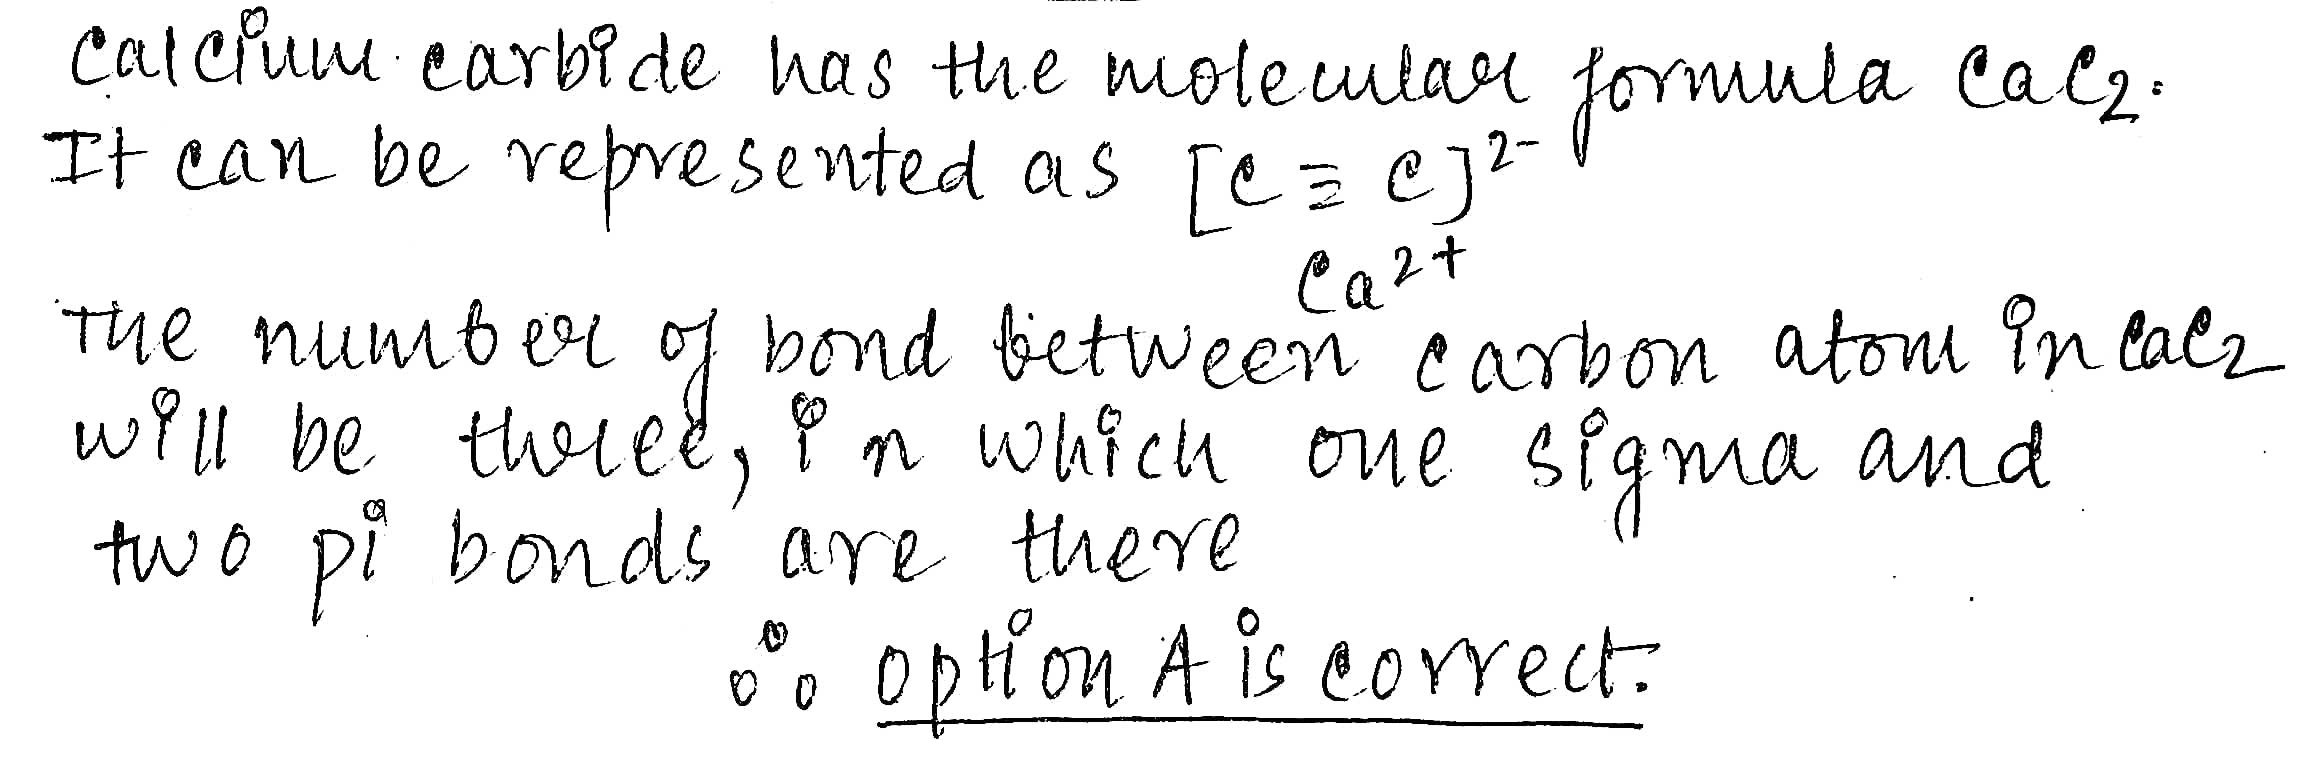 Calcium carbide has the molecular formula CaC₂.
It can be represented as [C ≡ C]²⁻
Ca²⁺
The number of bond between carbon atom in CaC₂
will be three, in which one sigma and
two pi bonds are there
∴ option A is correct.